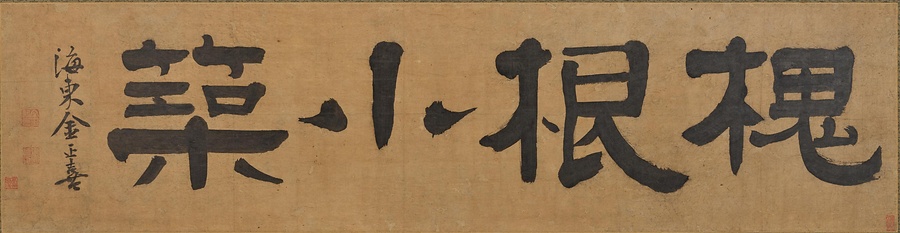 槐根小築
海東金正喜